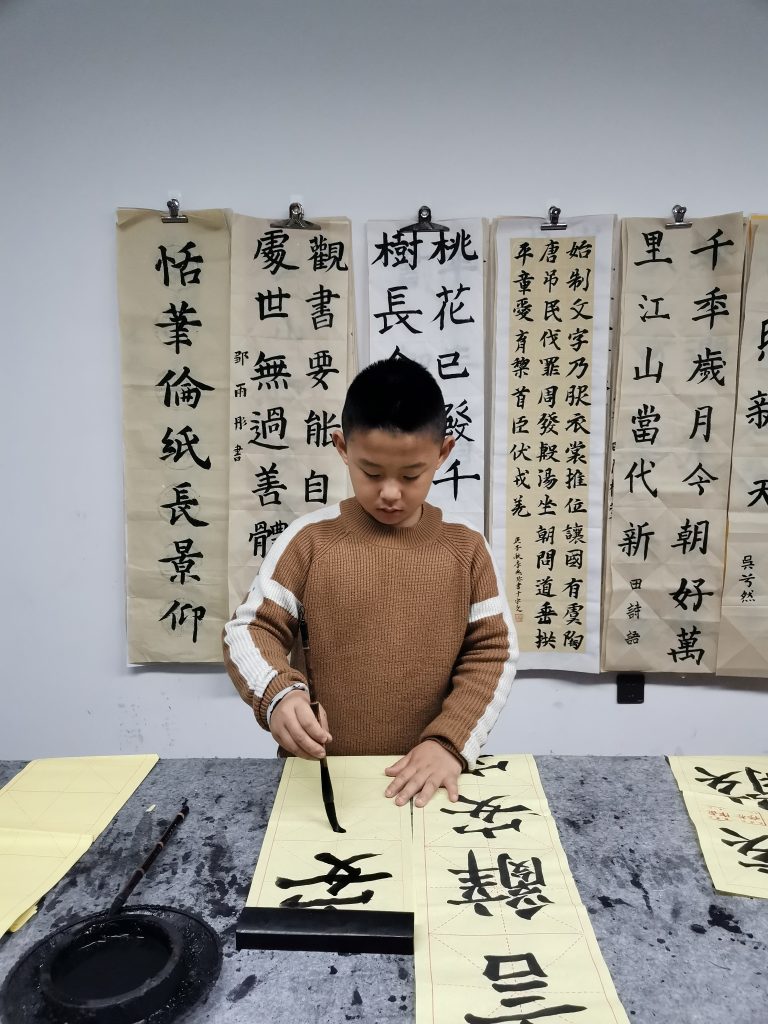 新天
吴兮然
千年歲月今朝好萬
里江山當代新
田詩語
始制文字乃服衣裳推位讓國有虞陶
唐吊民伐罪周發殷湯坐朝問道垂拱
平章愛育黎首臣伏戎羌
桃花已發千
樹長
觀書要能自
處世無過善體
邹雨彤書
恬筆倫紙長景仰
安
言
安